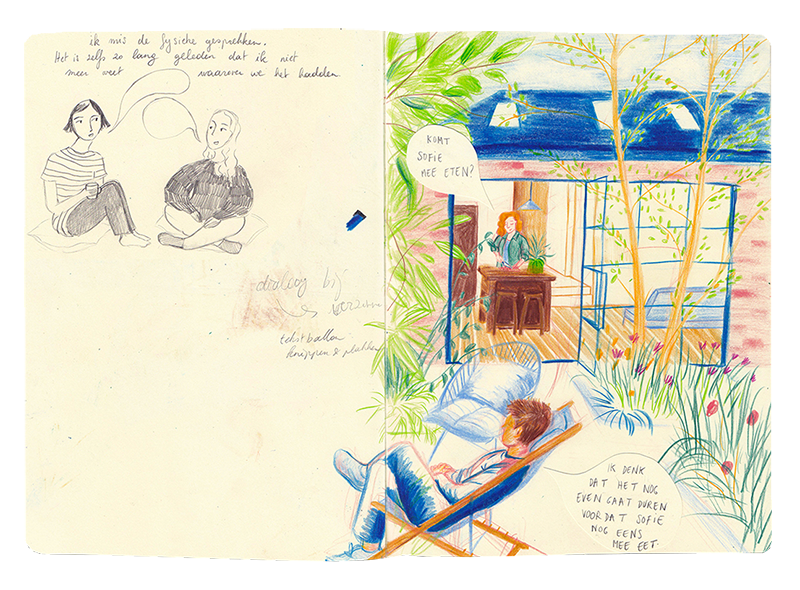 ik mis de fysieke gesprekken.
Het is zelfs zo lang geleden dat ik niet
meer weet waarover we het hadden
dialoog bij
verzinnen
tekstballon
knippen & plakken
KOMT
SOFIE
MEE ETEN?
IK DENK
DAT HET NOG
EVEN GAAT DUREN
VOORDAT SOFIE
NOG EENS
MEE EET.